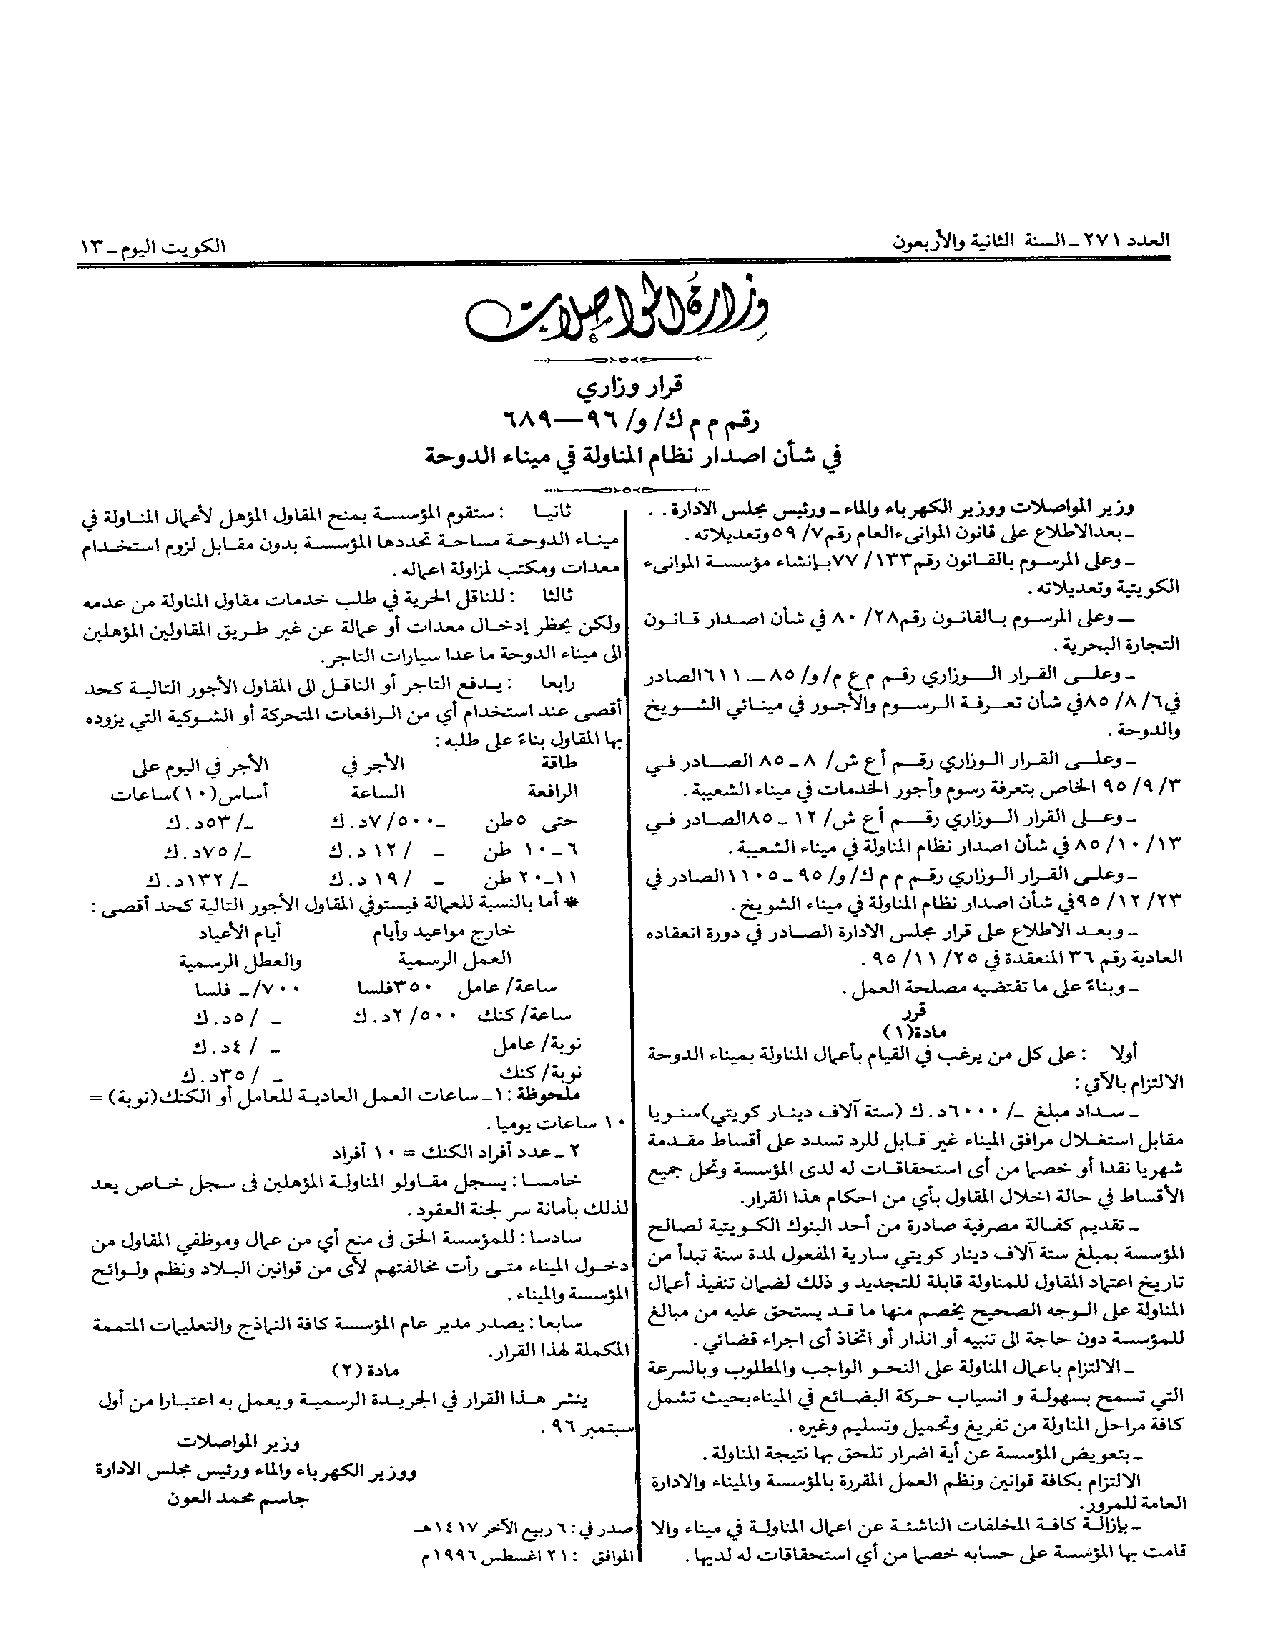 العدد ٢٧١ - السنة الثانية والأربعون
الكويت اليوم - ١٣
وزارة المواصلات
قرار وزاري
رقم م م ك/ و/ ٩٦ — ٦٨٩
في شأن اصدار نظام المناولة في ميناء الدوحة
وزير المواصلات ووزير الكهرباء والماء - ورئيس مجلس الادارة . .
- بعد الاطلاع على قانون الموانىء العام رقم ٧/ ٥٩ وتعديلاته .
- وعلى المرسوم بالقانون رقم ١٣٣/ ٧٧ بإنشاء مؤسسة الموانىء
الكويتية وتعديلاته .
- وعلى المرسوم بالقانون رقم ٢٨/ ٨٠ في شأن اصدار قانون
التجارة البحرية .
- وعلى القرار الوزاري رقم م ع م/ و/ ٨٥ - ٦١١ الصادر
في ٦/ ٨/ ٨٥ في شأن تعرفة الرسوم والأجور في مينائي الشويخ
والدوحة .
- وعلى القرار الوزاري رقم أ ع ش/ ٨ - ٨٥ الصادر في
٣/ ٩/ ٩٥ الخاص بتعرفة رسوم وأجور الخدمات في ميناء الشعيبة .
- وعلى القرار الوزاري رقم أ ع ش/ ١٢ - ٨٥ الصادر في
١٣/ ١٠/ ٨٥ في شأن اصدار نظام المناولة في ميناء الشعيبة .
- وعلى القرار الوزاري رقم م م ك/ و/ ٩٥ - ١١٠٥ الصادر في
٢٣/ ١٢/ ٩٥ في شأن اصدار نظام المناولة في ميناء الشويخ .
- وبعد الاطلاع على قرار مجلس الادارة الصادر في دورة انعقاده
العادية رقم ٣٦ المنعقدة في ٢٥/ ١١/ ٩٥ .
- وبناءً على ما تقتضيه مصلحة العمل .
قرر
مادة (١)
أولا : على كل من يرغب في القيام بأعمال المناولة بميناء الدوحة
الالتزام بالآتي :
- سداد مبلغ -/ ٦٠٠٠ د . ك (ستة آلاف دينار كويتي) سنويا
مقابل استغلال مرافق الميناء غير قابل للرد تسدد على أقساط مقدمة
شهريا نقدا أو خصما من أى استحقاقات له لدى المؤسسة وتحل جميع
الأقساط في حالة اخلال المقاول بأي من احكام هذا القرار.
- تقديم كفالة مصرفية صادرة من أحد البنوك الكويتية لصالح
المؤسسة بمبلغ ستة آلاف دينار كويتي سارية المفعول لمدة سنة تبدأ من
تاريخ اعتماد المقاول للمناولة قابلة للتجديد و ذلك لضمان تنفيذ أعمال
المناولة على الوجه الصحيح يخصم منها ما قد يستحق عليه من مبالغ
للمؤسسة دون حاجة الى تنبيه أو انذار أو اتخاذ أى اجراء قضائي .
- الالتزام باعمال المناولة على النحو الواجب والمطلوب وبالسرعة
التي تسمح بسهولة و انسياب حركة البضائع في الميناء بحيث تشمل
كافة مراحل المناولة من تفريغ وتحميل وتسليم وغيره .
- بتعويض المؤسسة عن أية اضرار تلحق بها نتيجة المناولة .
الالتزام بكافة قوانين ونظم العمل المقررة بالمؤسسة والميناء والادارة
العامة للمرور.
- بإزالة كافة المخلفات الناشئة عن اعمال المناولة في ميناء والا
قامت بها المؤسسة على حسابه خصما من أي استحقاقات له لديها .
ثانيا : ستقوم المؤسسة بمنح المقاول المؤهل لأعمال المناولة في
ميناء الدوحة مساحة تحددها المؤسسة بدون مقابل لزوم استخدام
معدات ومكتب لمزاولة اعماله .
ثالثا : للناقل الحرية في طلب خدمات مقاول المناولة من عدمه
ولكن يحظر إدخال معدات أو عمالة عن غير طريق المقاولين المؤهلين
الى ميناء الدوحة ما عدا سيارات التاجر.
رابعا : يدفع التاجر أو الناقل الى المقاول الأجور التالية كحد
أقصى عند استخدام أي من الرافعات المتحركة أو الشوكية التي يزوده
بها المقاول بناءً على طلبه :
طاقة الأجر في الأجر في اليوم على
الرافعة الساعة أساس (١٠) ساعات
حتى ٥ طن -٧/٥٠٠ د . ك -/ ٥٣ د . ك
٦ - ١٠ طن - / ١٢ د . ك -/ ٧٥ د . ك
١١ - ٢٠ طن - / ١٩ د . ك -/ ١٣٢ د . ك
* أما بالنسبة للعمالة فيستوفي المقاول الأجور التالية كحد أقصى :
خارج مواعيد وأيام أيام الأعياد
العمل الرسمية والعطل الرسمية
ساعة/ عامل ٣٥٠ فلسا ٧٠٠/- فلسا
ساعة/ كنك ٢/٥٠٠ د . ك - / ٥ د . ك
نوبة/ عامل - / ٤ د . ك
نوبة/ كنك - / ٣٥ د . ك
ملحوظة : ١ - ساعات العمل العادية للعامل أو الكنك (نوبة) =
١٠ ساعات يوميا .
٢ - عدد أفراد الكنك = ١٠ أفراد
خامسا : يسجل مقاولو المناولة المؤهلين فى سجل خاص يعد
لذلك بأمانة سر لجنة العقود .
سادسا : للمؤسسة الحق فى منع أي من عمال وموظفي المقاول من
دخول الميناء متى رأت مخالفتهم لأى من قوانين البلاد ونظم ولوائح
المؤسسة والميناء .
سابعا : يصدر مدير عام المؤسسة كافة النماذج والتعليمات المتممة
المكملة لهذا القرار.
مادة (٢)
ينشر هذا القرار في الجريدة الرسمية ويعمل به اعتبارا من أول
سبتمبر ٩٦ .
وزير المواصلات
ووزير الكهرباء والماء ورئيس مجلس الادارة
جاسم محمد العون
صدر في : ٦ ربيع الآخر ١٤١٧ هـ
الموافق : ٢١ اغسطس ١٩٩٦ م